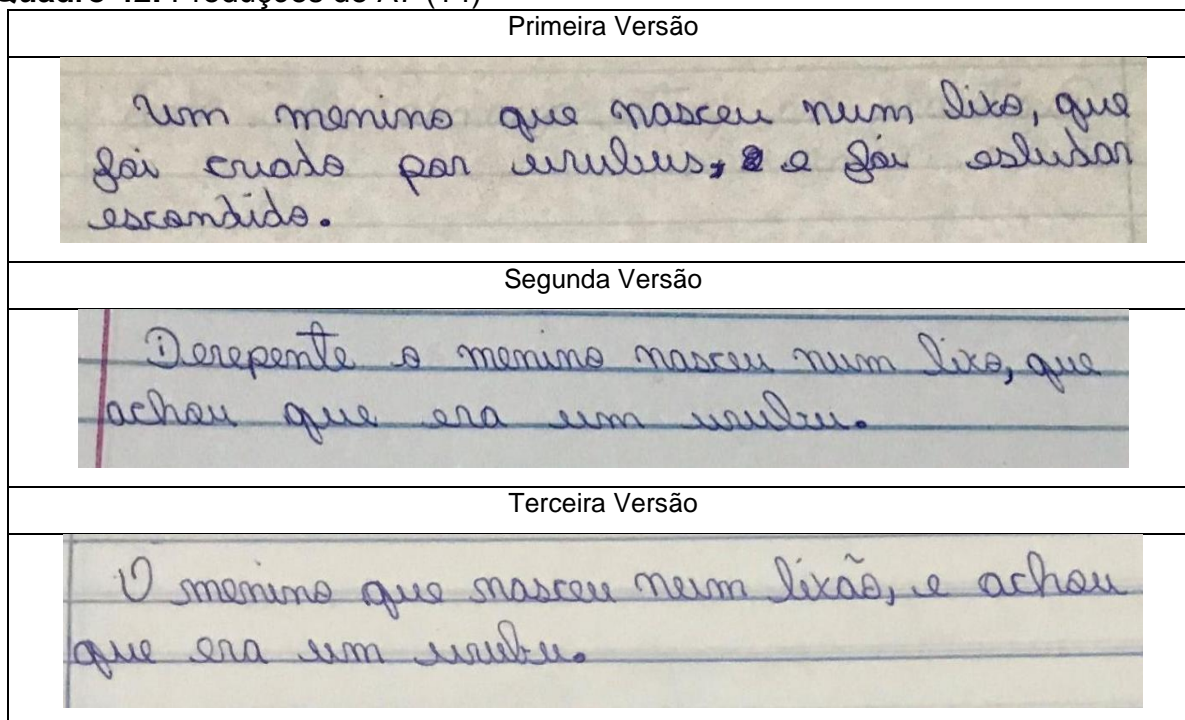 Primeira Versão
Um menino que nasceu num lixo, que
foi criado por urubus, e foi estudar
escondido.
Segunda Versão
Derepente o menino nasceu num lixo, que
achou que era um urubu.
Terceira Versão
O menino que nasceu num lixão, e achou
que era um urubu.